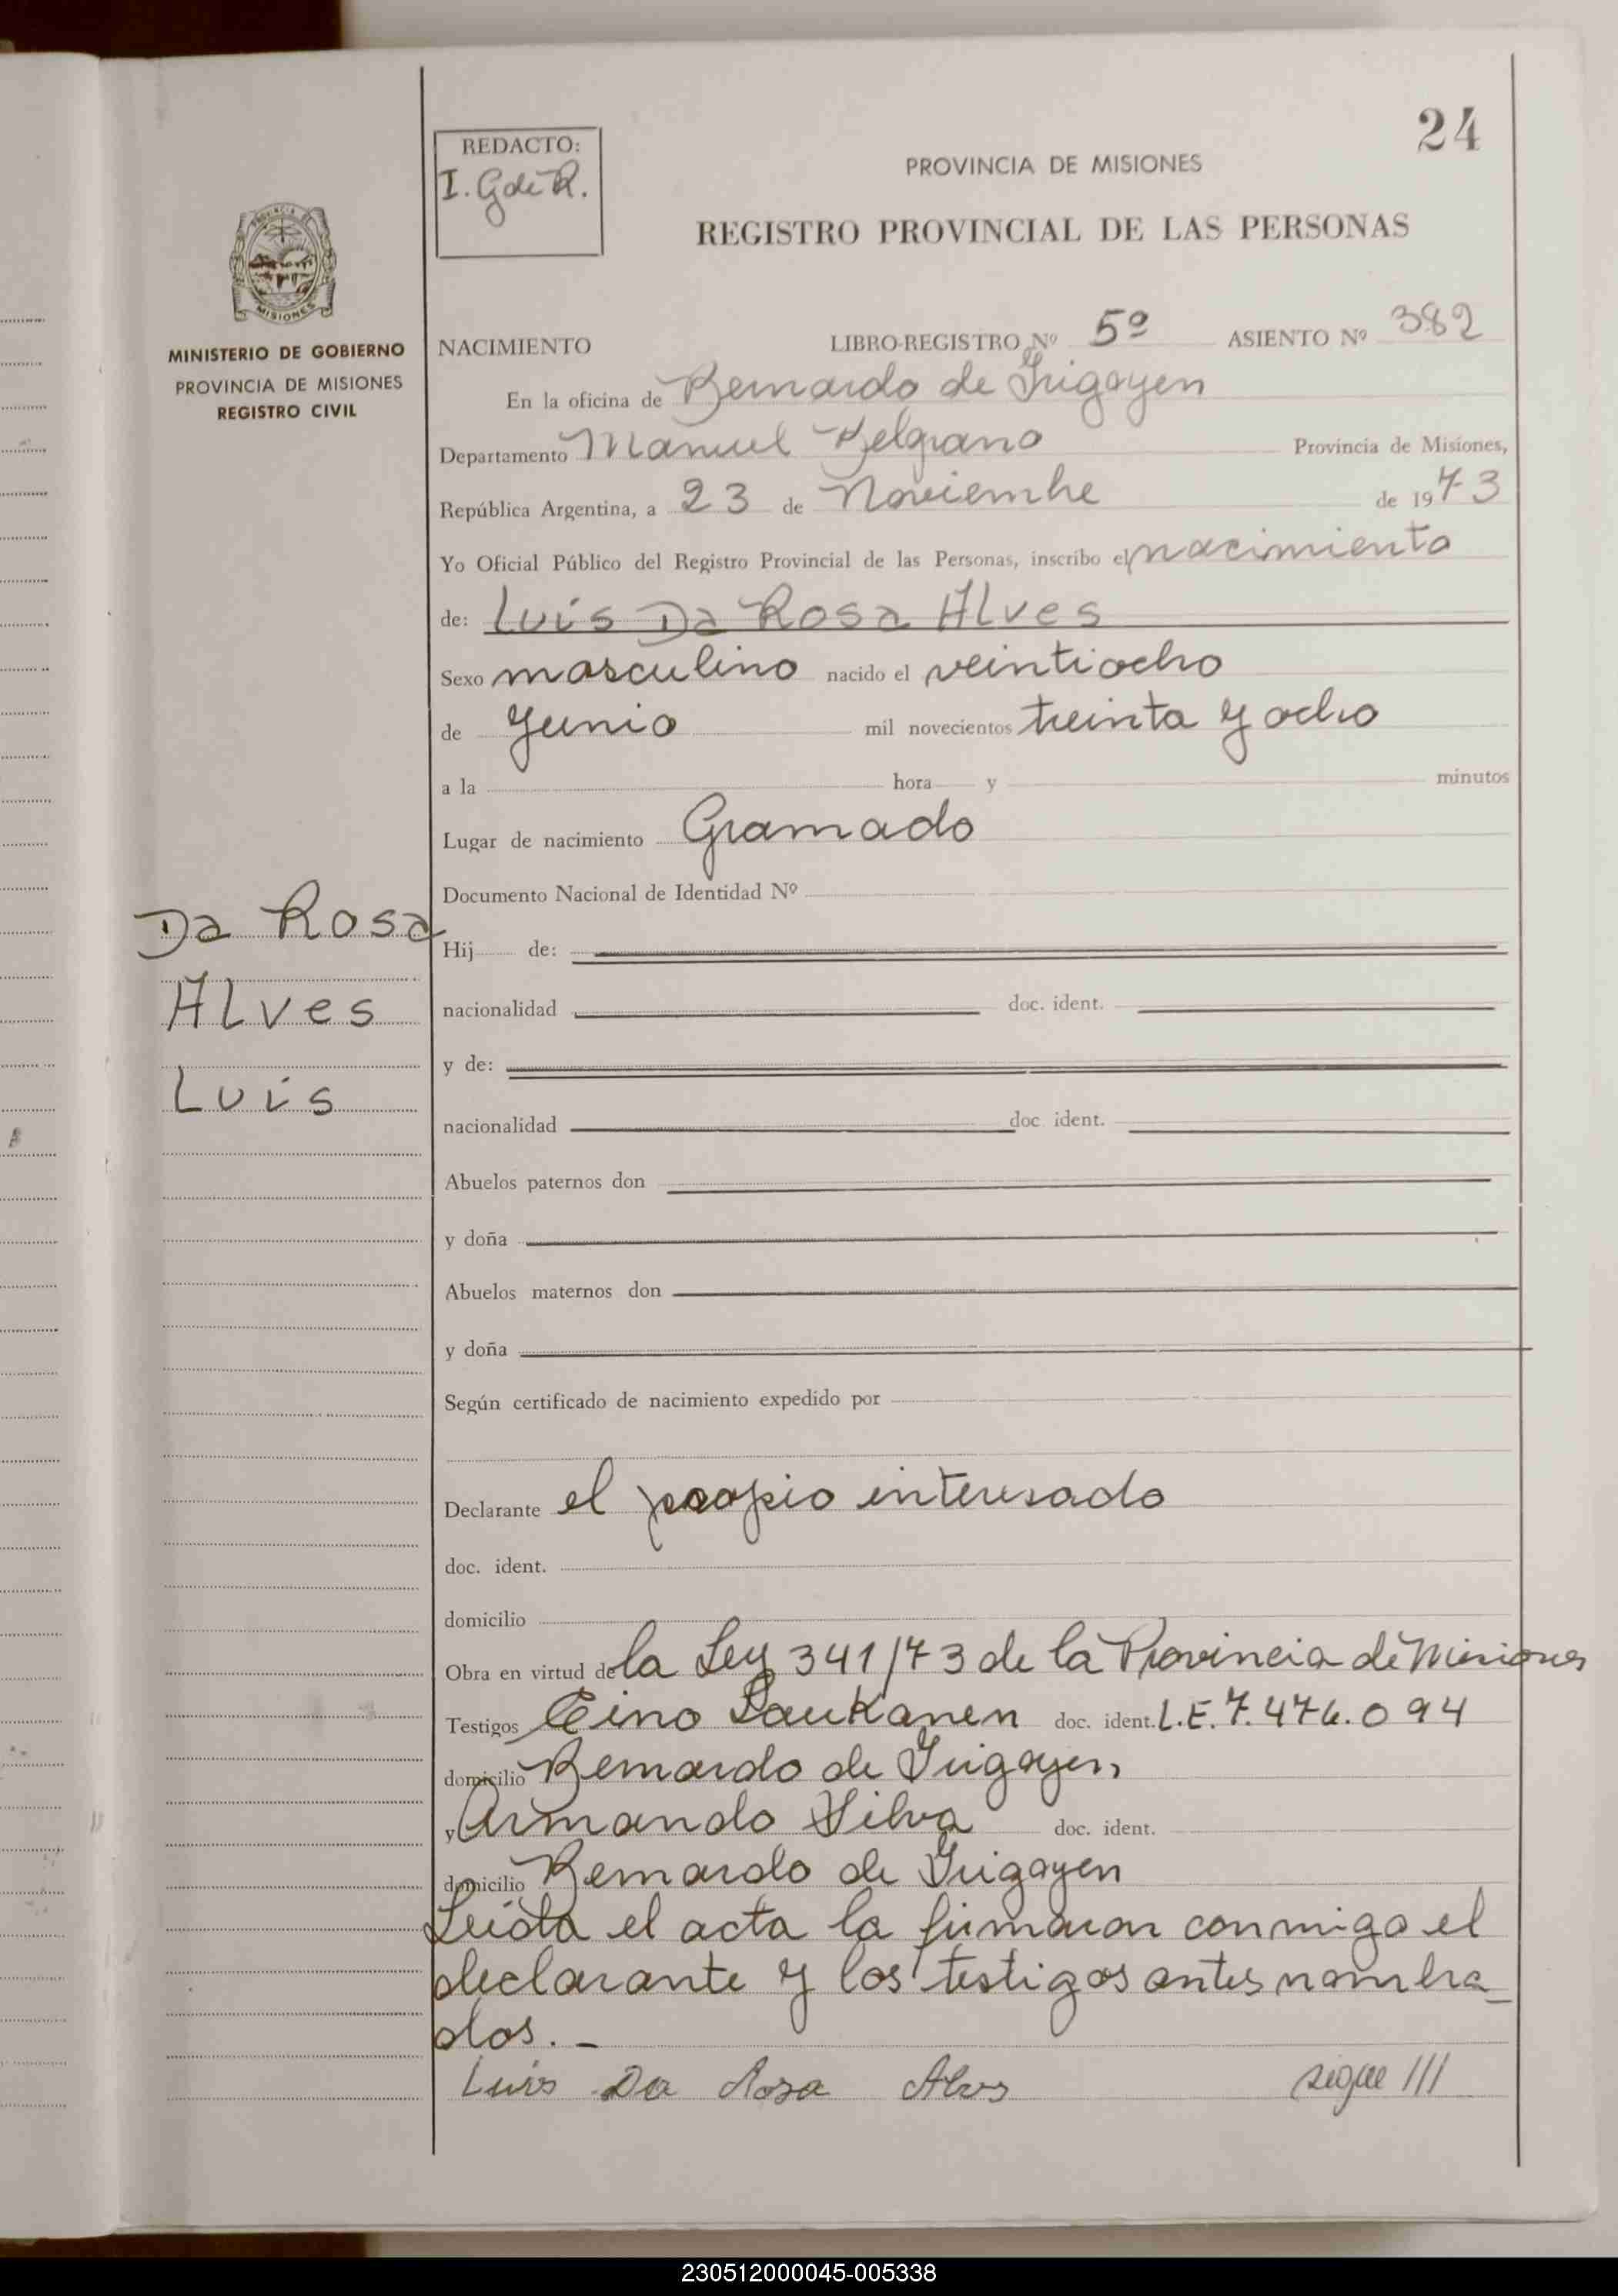 24
REDACTO:
I. G de R.
PROVINCIA DE MISIONES
REGISTRO PROVINCIAL DE LAS PERSONAS
PROVINCIA DE
MISIONES
MINISTERIO DE GOBIERNO
PROVINCIA DE MISIONES
REGISTRO CIVIL
NACIMIENTO LIBRO-REGISTRO Nº 5º ASIENTO Nº 382
En la oficina de Bernardo de Irigoyen
Departamento Manuel Belgrano Provincia de Misiones,
República Argentina, a 23 de Noviembre de 1973
Yo Oficial Público del Registro Provincial de las Personas, inscribo el nacimiento
de: Luis Da Rosa Alves
Sexo masculino nacido el veintiocho
de Junio mil novecientos treinta y ocho
a la hora y minutos
Lugar de nacimiento Gramado
Documento Nacional de Identidad Nº
Da Rosa
Alves
Luis
Hij de:
nacionalidad doc. ident.
y de:
nacionalidad doc. ident.
Abuelos paternos don
y doña
Abuelos maternos don
y doña
Según certificado de nacimiento expedido por
Declarante el propio interesado
doc. ident.
domicilio
Obra en virtud de la Ley 341/73 de la Provincia de Misiones
Testigos Eino Laukanen doc. ident. L.E. 7.476.094
domicilio Bernardo de Irigoyen,
y Armando Silva doc. ident.
domicilio Bernardo de Irigoyen
Leida el acta la firmaron conmigo el
declarante y los testigos antes nombra_
dos._
Luis Da Rosa Alves sigue ///
230512000045-005338